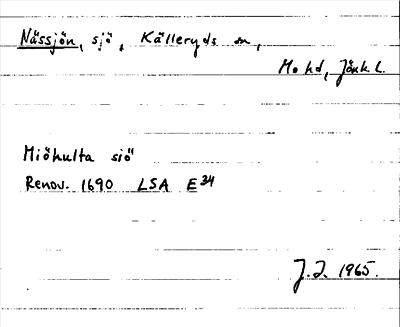 Nässjön, sjö, Källeryds sn,
Mo hd, Jönk. l.
Miöhulta siö
Renov. 1690 LSA E34
J. I. 1965.